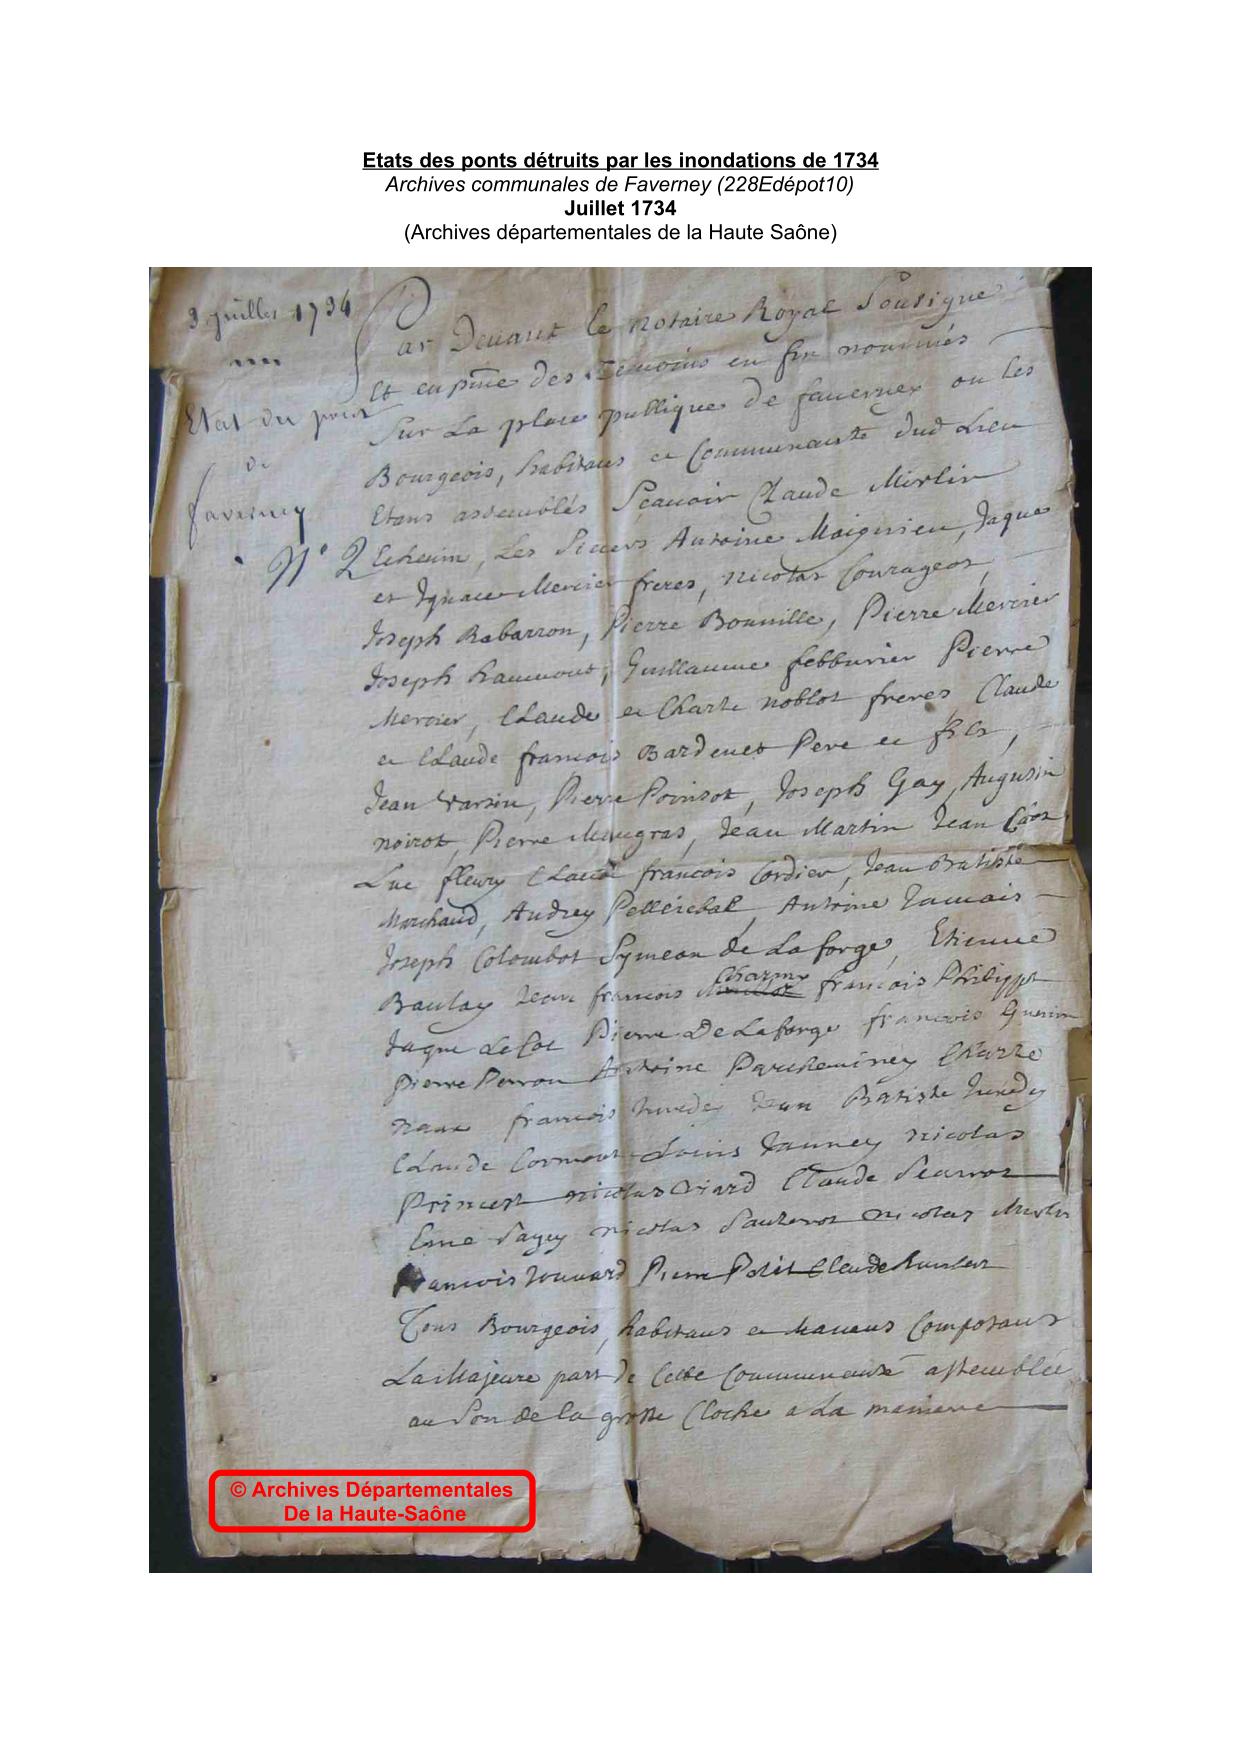 Etats des ponts détruits par les inondations de 1734
Archives communales de Faverney (228Edépot10)
Juillet 1734
(Archives départementales de la Haute Saône)
3 juillet 1734
Etat du pont
de
faverney
N° 2
Par Devant le notaire Royal Sousigné
Et en pñce des Temoins en fin nommés
Sur La place publique de faverney ou les
Bourgeois, habitans et Communauté dud Lieu
Etans assemblés Scavoir Claude Mirlin
Echevin, Les Sieurs Antoine Maignien, Jaque
et Ignace Mercier freres, nicolas Courageot,
Joseph Rabarron, Pierre Bonnille, Pierre Mercier
Joseph haumont, Guillaume febburier Pierre
Mercier, Claude et Charle noblot freres Claude
et Claude francois Bardenet Pere et fils,
Jean Varsin, Pierre Poinsot, Joseph Gay, Augustin
noirot, Pierre Maugras, Jean Martin Jean
Luc fleury Claude francois Cordier, Jean Batiste
Marchand, Andrey Pellérebal, Antoine Jamais
Joseph Colombot Symeon de La forge, Etienne
Baulay Jean francois Charmy francois Philippe
Jaque Le Coc Pierre De Laforge francois Guerin
Pierre Perron Antoine Parcheminey Charle
francois Jean Batiste
Claude Cormont Louis Jauney nicolas
Princet nicolas Claude
Sagey nicolas nicolas
francois Pierre Petit Claude
Tous Bourgeois, habitans et Manans Composans
La Majeure part de Cette Communauté assemblée
au Son de la grosse Cloche a La maniere
© Archives Départementales
De la Haute-Saône